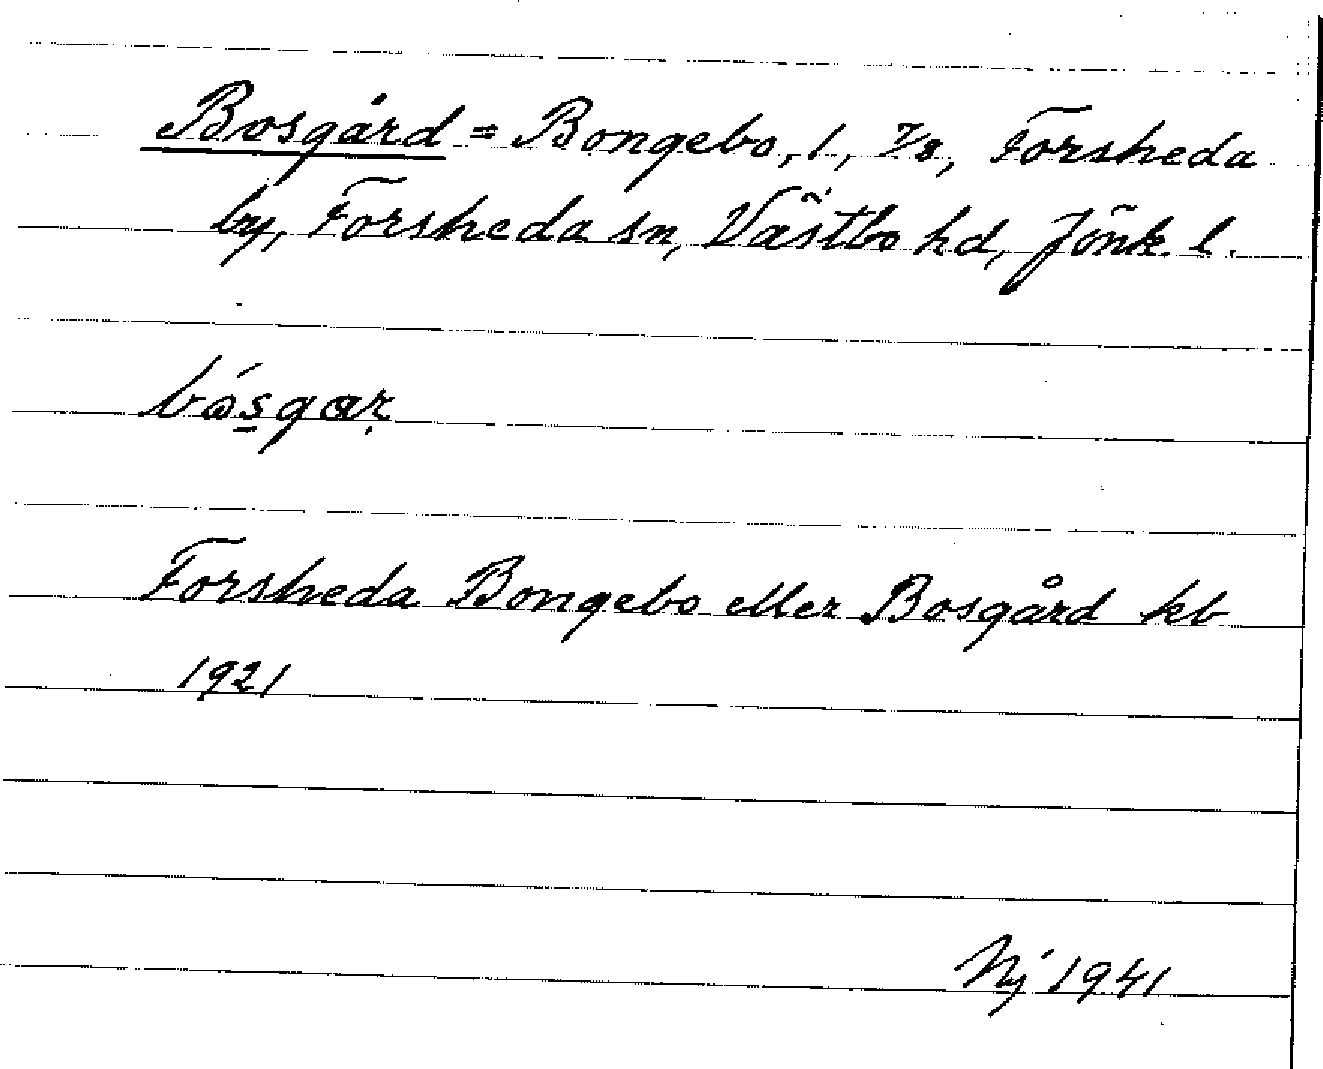 Bosgård = Bongebo, 1, 7/8, Forsheda
by, Forsheda sn, Västbo hd, Jönk. l.
Forsheda Bongebo eller Bosgård kb
1921
Nj 1941